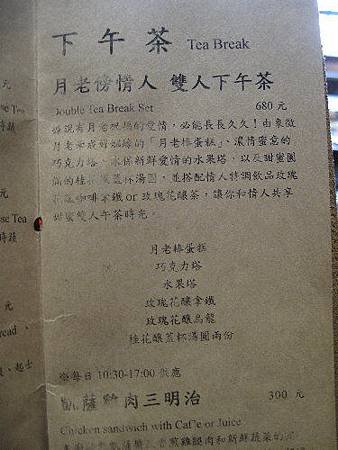 下午茶 Tea Break
月老傍情人 雙人下午茶
Double Tea Break Set 680 元
據說有月老祝福的愛情,必能長長久久!由象徵
月老牽成好姻緣的「月老棒蛋糕」、濃情蜜意的
巧克力塔、永保新鮮愛情的水果塔,以及甜蜜圓
滿的桂花釀蓋杯湯圓,並搭配情人特調飲品玫瑰
花釀咖啡拿鐵 or 玫瑰花釀茶,讓你和情人共享
甜蜜雙人午茶時光。
月老棒蛋糕
巧克力塔
水果塔
玫瑰花釀拿鐵
玫瑰花釀烏龍
桂花釀蓋杯湯圓兩份
每日 10:30-17:00 供應
凱薩雞肉三明治 300 元
Chicken sandwich with Caf'e or Juice
煎雞腿肉和新鮮蔬菜的
元
se Tea
時蔬
元
read、
、起士